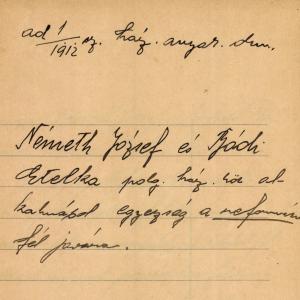 ad 1/1912 sz. ház. anyak. drm.
Németh József és Bódi
Etelka polg. ház. köt al-
kalmából egyezség a reform
fél javára.